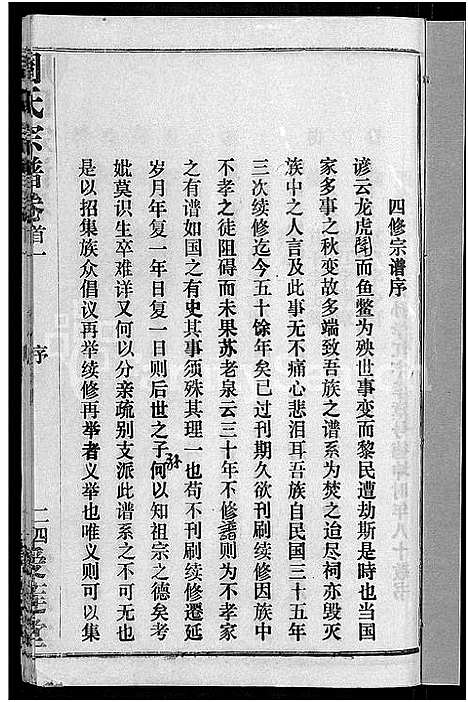 四修宗谱序
谚云龙虎鬪而鱼鳖为殃世事变而黎民遭劫斯是時也当国
家多事之秋变故多端致吾族之谱系为焚之迨尽祠亦毁灭
族中之人言及此事无不痛心悲泪耳吾族自民国三十五年
三次续修迄今五十馀年矣已过刊期久欲刊刷续修因族中
不孝之徒阻碍而未果苏老泉云三十年不修譜则为不孝家
之有谱如国之有史其事须殊其理一也苟不刊刷续修遷延
岁月年复一年日复一日则后世之子孙何以知祖宗之德矣考
妣莫识生卒难详又何以分亲疏别支派此谱系之不可无也
是以招集族众倡议再举续修再举者义举也唯义则可以集
周氏宗譜卷首一
序
二四愛蓮堂